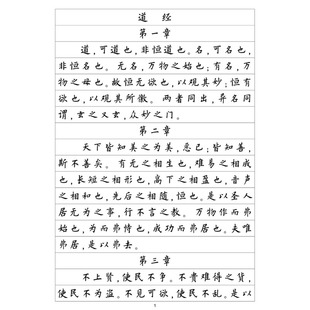 道 经
第一章
道,可道也,非恒道也。名,可名也,
非恒名也。无名,万物之始也;有名,万
物之母也。故恒无欲也,以观其妙;恒有
欲也,以观其所徼。两者同出,异名同
谓,玄之又玄,众妙之门。
第二章
天下皆知美之为美,恶已;皆知善,
斯不善矣。有无之相生也,难易之相成
也,长短之相形也,高下之相盈也,音声
之相和也,先后之相随,恒也。是以圣人
居无为之事,行不言之教。万物作而弗
始也,为而弗恃也,成功而弗居也。夫唯
弗居,是以弗去。
第三章
不上贤,使民不争。不贵难得之货,
使民不为盗。不见可欲,使民不乱。是以